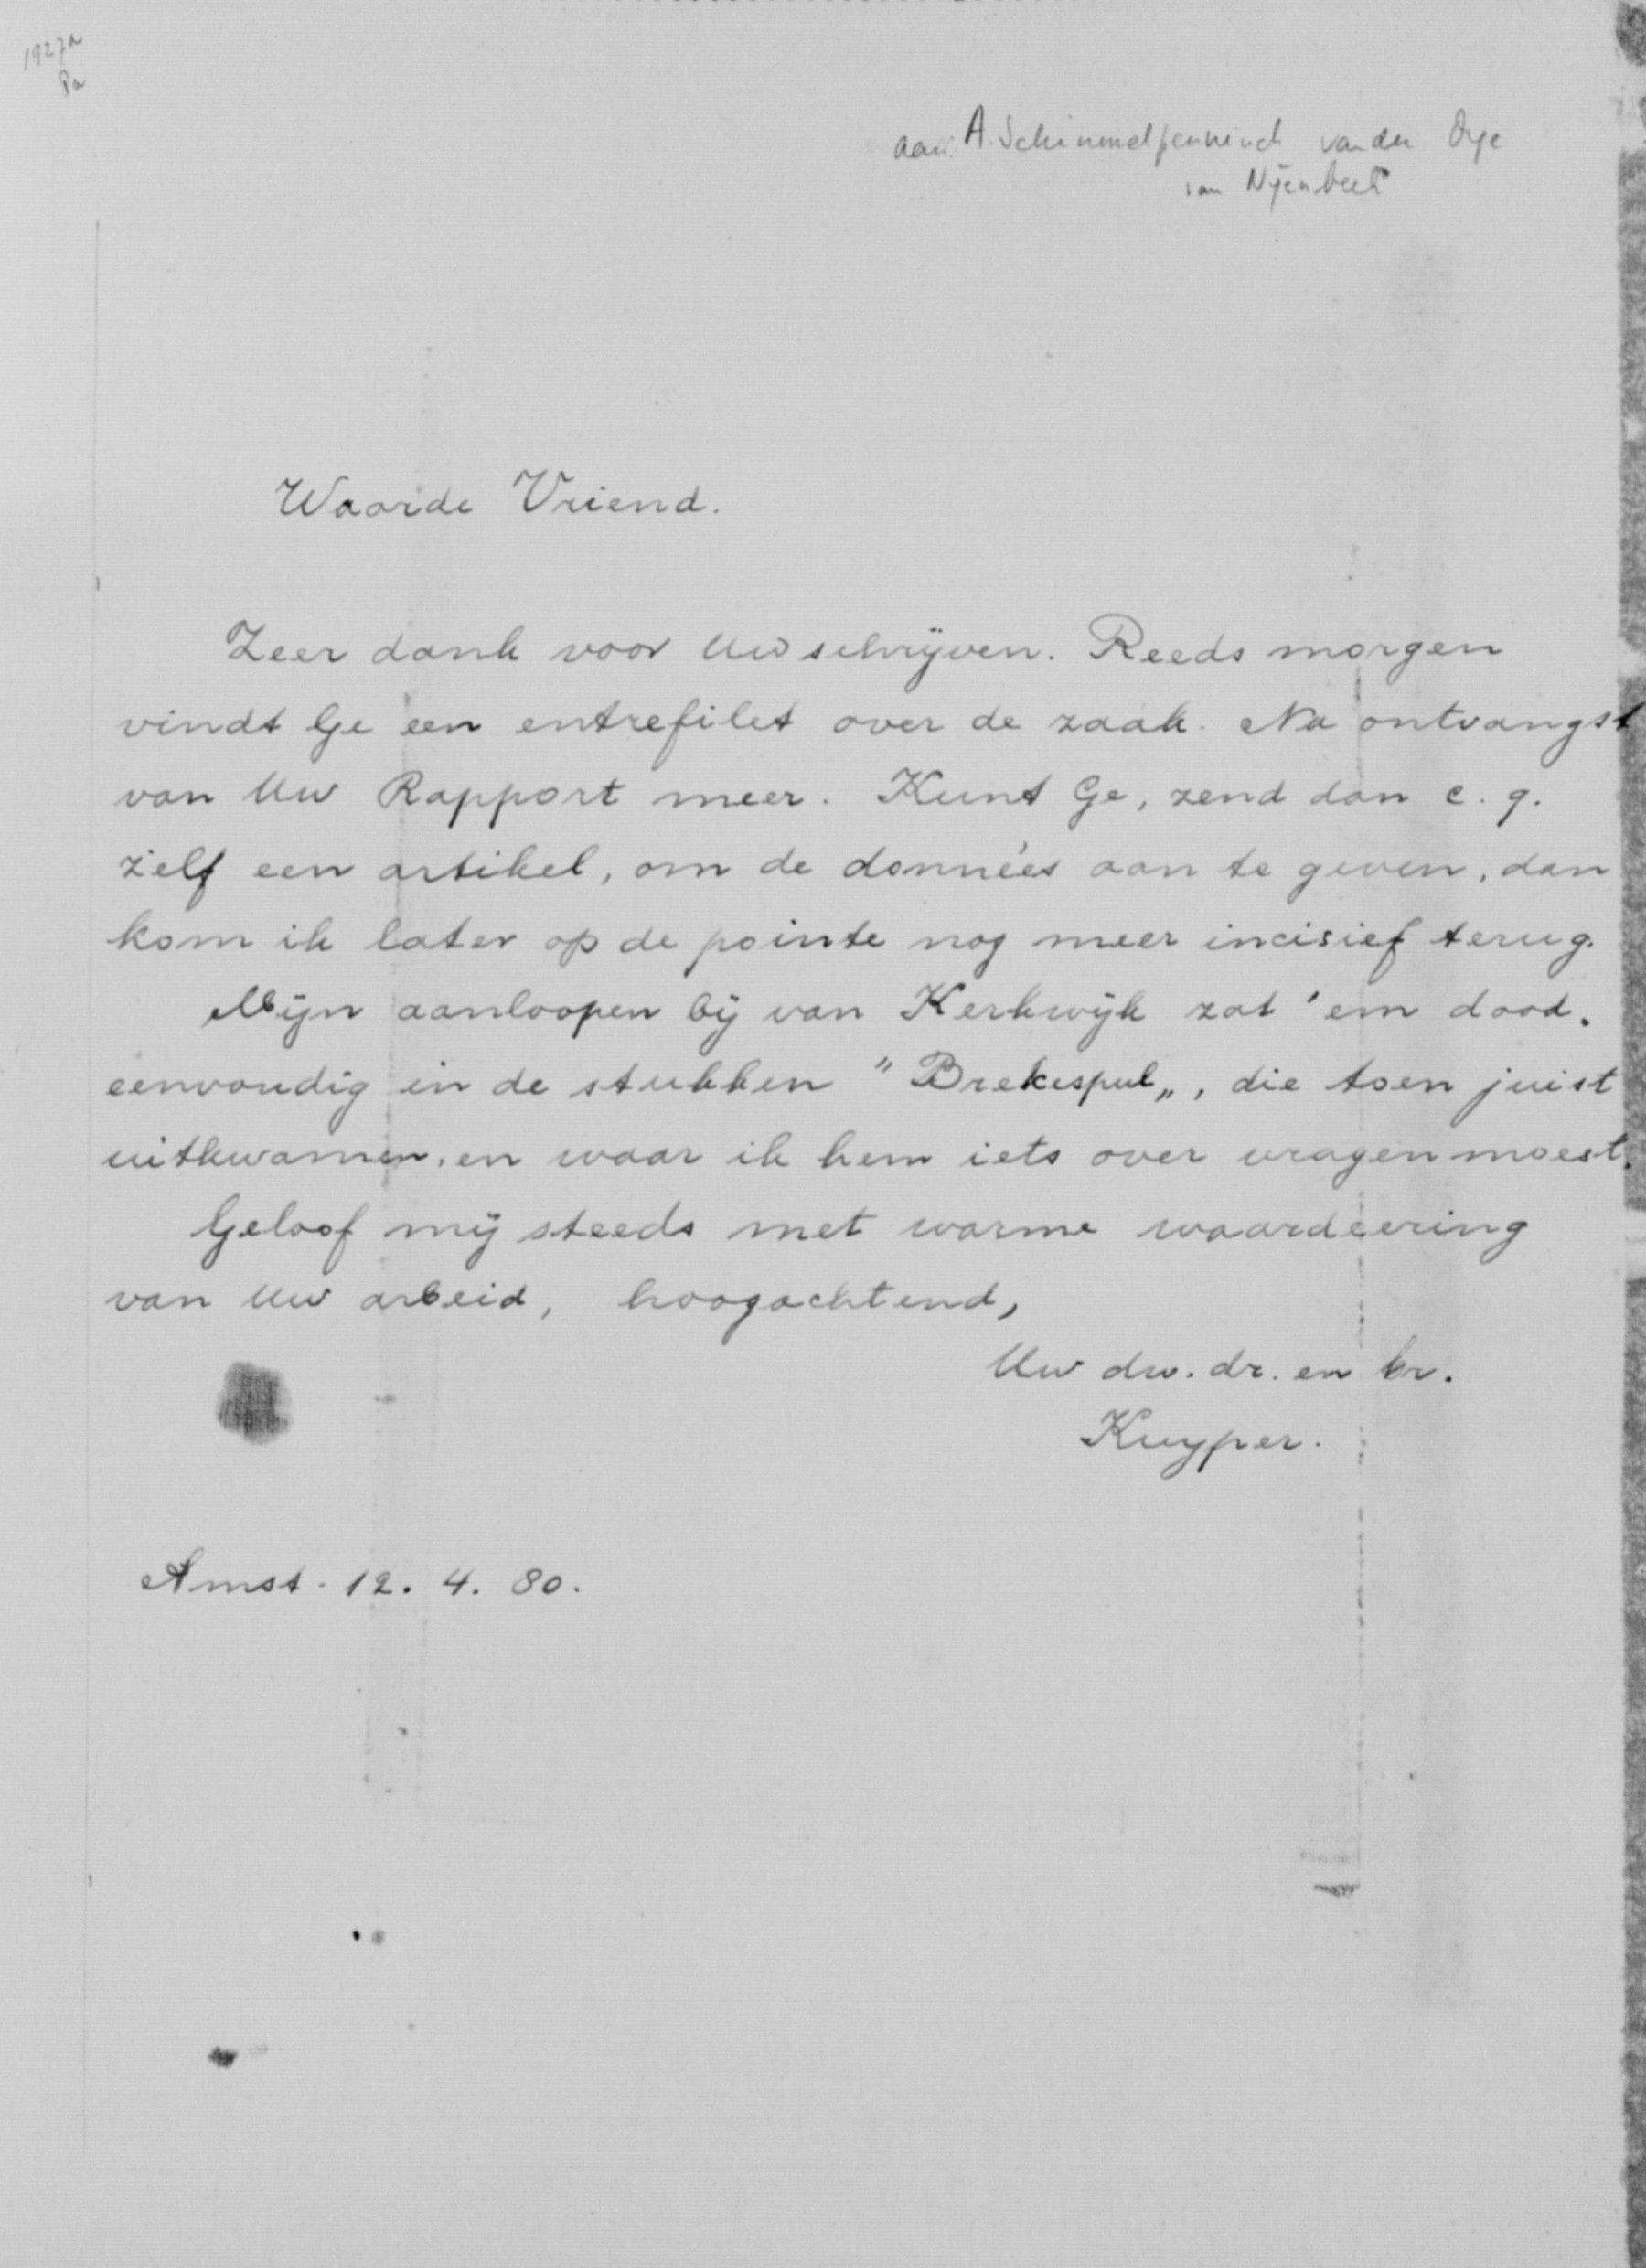 1927a
Pa
aan A. Schimmelpenninck van der Oye
van Nijenbeek
Waarde Vriend.
Zeer dank voor Uw schrijven. Reeds morgen
vindt Ge een entrefilet over de zaak. Na ontvangst
van Uw Rapport meer. Kunt Ge, zend dan c. q.
zelf een artikel, om de données aan te geven, dan
kom ik later op de pointe nog meer incisief terug.
Mijn aanloopen bij van Kerkwijk zat 'em dood.
eenvoudig in de stukken "Brekespul„, die toen juist
uitkwamen, en waar ik hem iets over vragen moest.
Geloof mij steeds met warme waardeering
van Uw arbeid, hoogachtend,
Uw dw. dr. en br.
Kuyper.
Amst. 12. 4. 80.